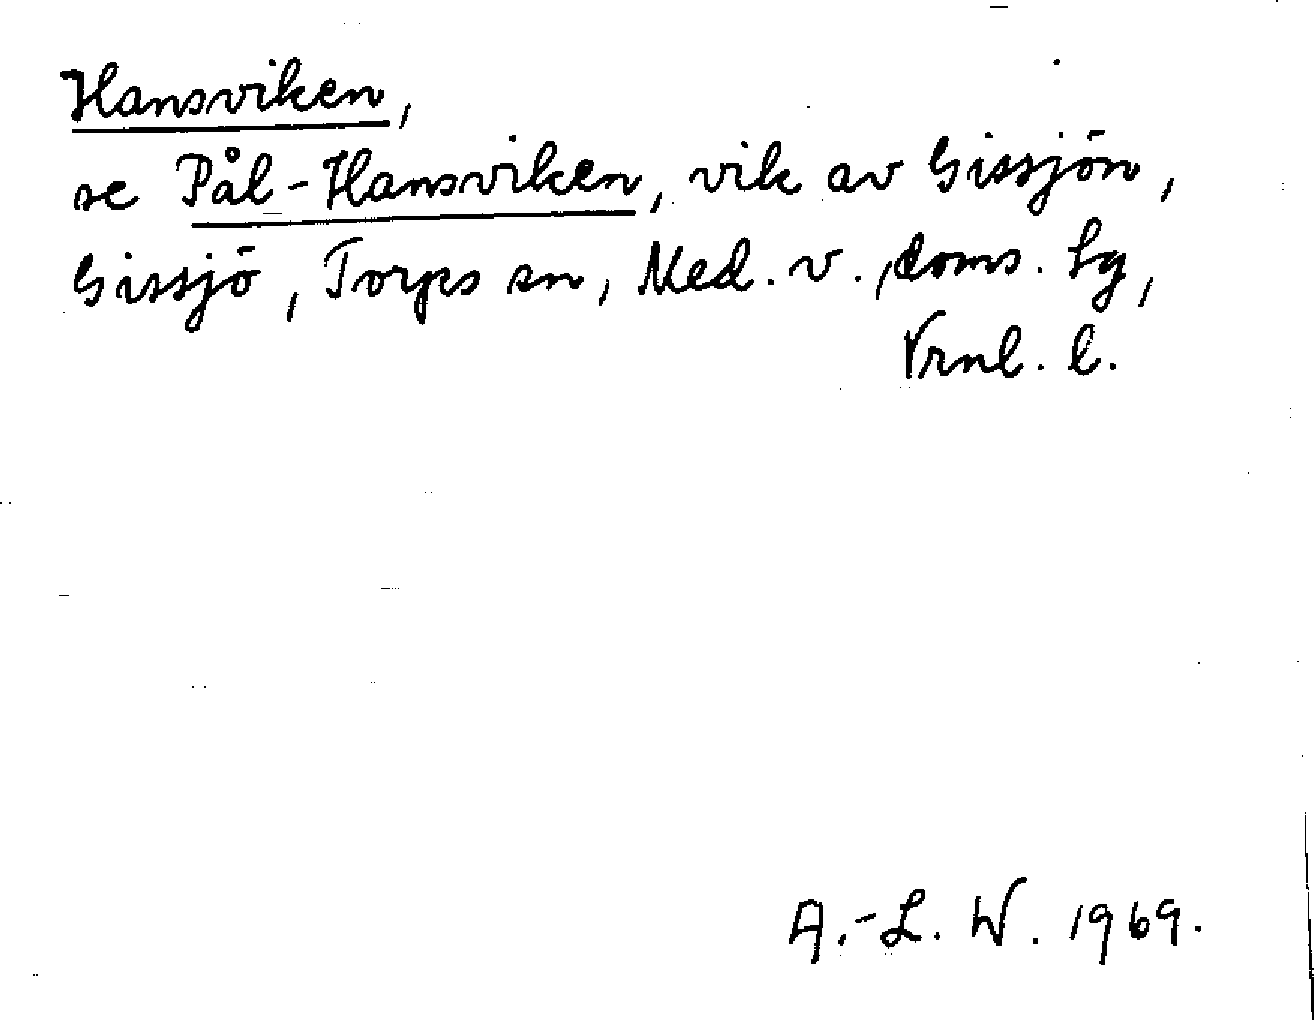 Hansviken,
se Pål-Hansviken, vik av Gissjön,
Gissjö, Torps sn, Med. v., doms. Lg,
Vrnl. l.
A.-L. W. 1969.